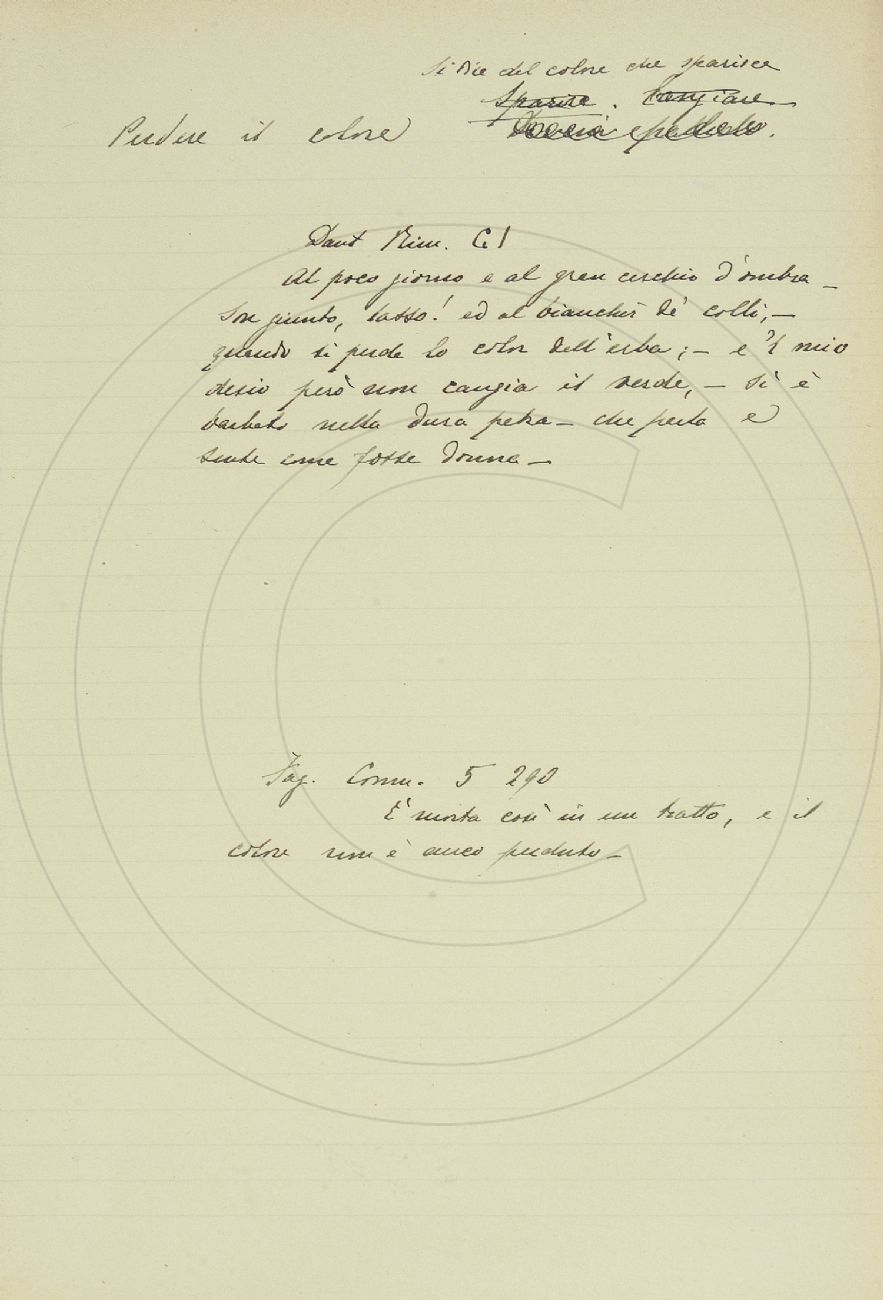 Si dice del colore che sparisce
Sparire. Cangiare
Perdere il colore
Dant Rim. CI
Al poco giorno e al gran cerchio d'ombra -
Son giunto, lasso! ed al bianchir de' colli; -
quando si perde lo color dell'erba; - e 'l mio
desio però non cangia il verde, - Sì è
barbato nella dura petra - che parla e
sente come fosse donna -
Fag. Comm. 5 290
È morta così in un tratto, e il
colore non è anco perduto -